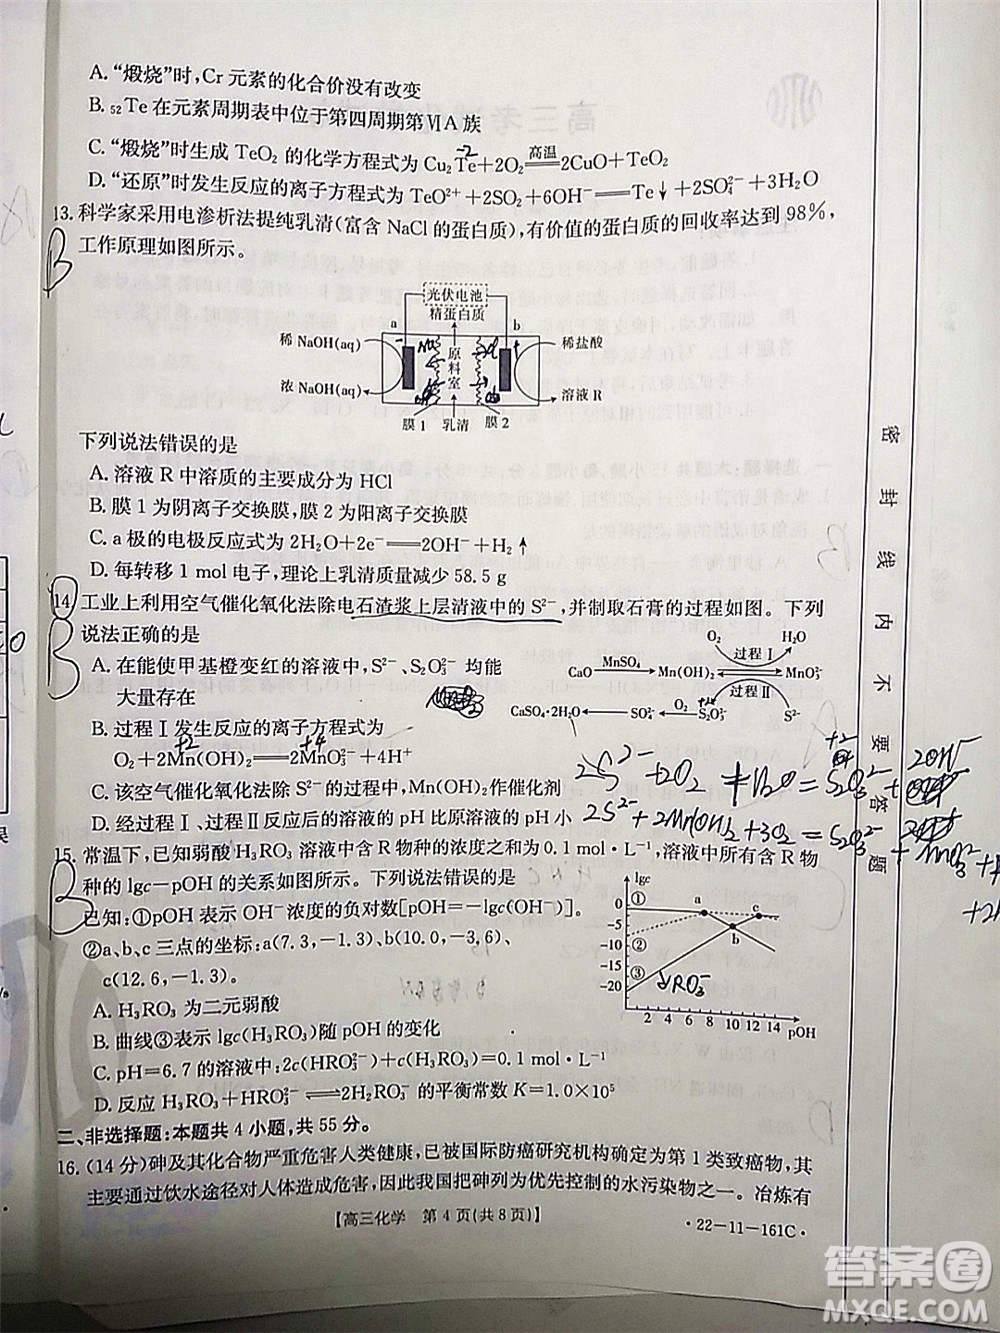 A. “煅烧”时,Cr 元素的化合价没有改变
B. ₅₂Te 在元素周期表中位于第四周期第ⅥA 族
C. “煅烧”时生成 TeO₂ 的化学方程式为 Cu₂Te+2O₂ =高温= 2CuO+TeO₂
D. “还原”时发生反应的离子方程式为 TeO²⁺+2SO₂+6OH⁻══Te↓+2SO₄²⁻+3H₂O
13. 科学家采用电渗析法提纯乳清(富含 NaCl 的蛋白质),有价值的蛋白质的回收率达到 98%,
工作原理如图所示。
B
光伏电池
a 精蛋白质 b
稀 NaOH(aq) 稀盐酸
原料室
浓 NaOH(aq) 溶液 R
膜 1 乳清 膜 2
下列说法错误的是
A. 溶液 R 中溶质的主要成分为 HCl
B. 膜 1 为阴离子交换膜,膜 2 为阳离子交换膜
C. a 极的电极反应式为 2H₂O+2e⁻══2OH⁻+H₂↑
D. 每转移 1 mol 电子,理论上乳清质量减少 58.5 g
14. 工业上利用空气催化氧化法除电石渣浆上层清液中的 S²⁻,并制取石膏的过程如图。下列
说法正确的是
B
O₂ H₂O
过程Ⅰ
CaO MnSO₄ Mn(OH)₂ MnO₃²⁻
过程Ⅱ
CaSO₄·2H₂O SO₄²⁻ O₂ S₂O₃²⁻ S²⁻
A. 在能使甲基橙变红的溶液中,S²⁻、S₂O₃²⁻ 均能
大量存在
B. 过程Ⅰ发生反应的离子方程式为
+2 +4
O₂+2Mn(OH)₂══2MnO₃²⁻+4H⁺
C. 该空气催化氧化法除 S²⁻时,Mn(OH)₂ 作催化剂
D. 经过程Ⅰ、过程Ⅱ反应后的溶液的 pH 比原溶液的 pH 小
15. 常温下,已知弱酸 H₃RO₃ 溶液中含 R 物种的浓度之和为 0.1 mol·L⁻¹,溶液中所有含 R 物
种的 lgc-pOH 的关系如图所示。下列说法错误的是
B
已知:①pOH 表示 OH⁻浓度的负对数[pOH=-lgc(OH⁻)]。
②a、b、c 三点的坐标:a(7.3,-1.3)、b(10.0,-3.6)、
c(12.6,-1.3)。
lgc
① a c
0
-5
② b
-10
-15
③
-20
2 4 6 8 10 12 14 pOH
A. H₃RO₃ 为二元弱酸
B. 曲线③表示 lgc(H₃RO₃)随 pOH 的变化
C. pH=6.7 的溶液中:c(HRO₃²⁻)+c(H₃RO₃)=0.1 mol·L⁻¹
D. 反应 H₃RO₃+HRO₃²⁻⇌2H₂RO₃⁻ 的平衡常数 K=1.0×10⁵
二、非选择题:本题共 4 小题,共 55 分。
16. (14 分)砷及其化合物严重危害人类健康,已被国际防癌研究机构确定为第 1 类致癌物,其
主要通过饮水途径对人体造成危害,因此我国把砷列为优先控制的水污染物之一。冶炼有
【高三化学 第 4 页(共 8 页)】
·22-11-161C·
密 封 线 内 不 要 答 题
答案圈
MXQE.COM